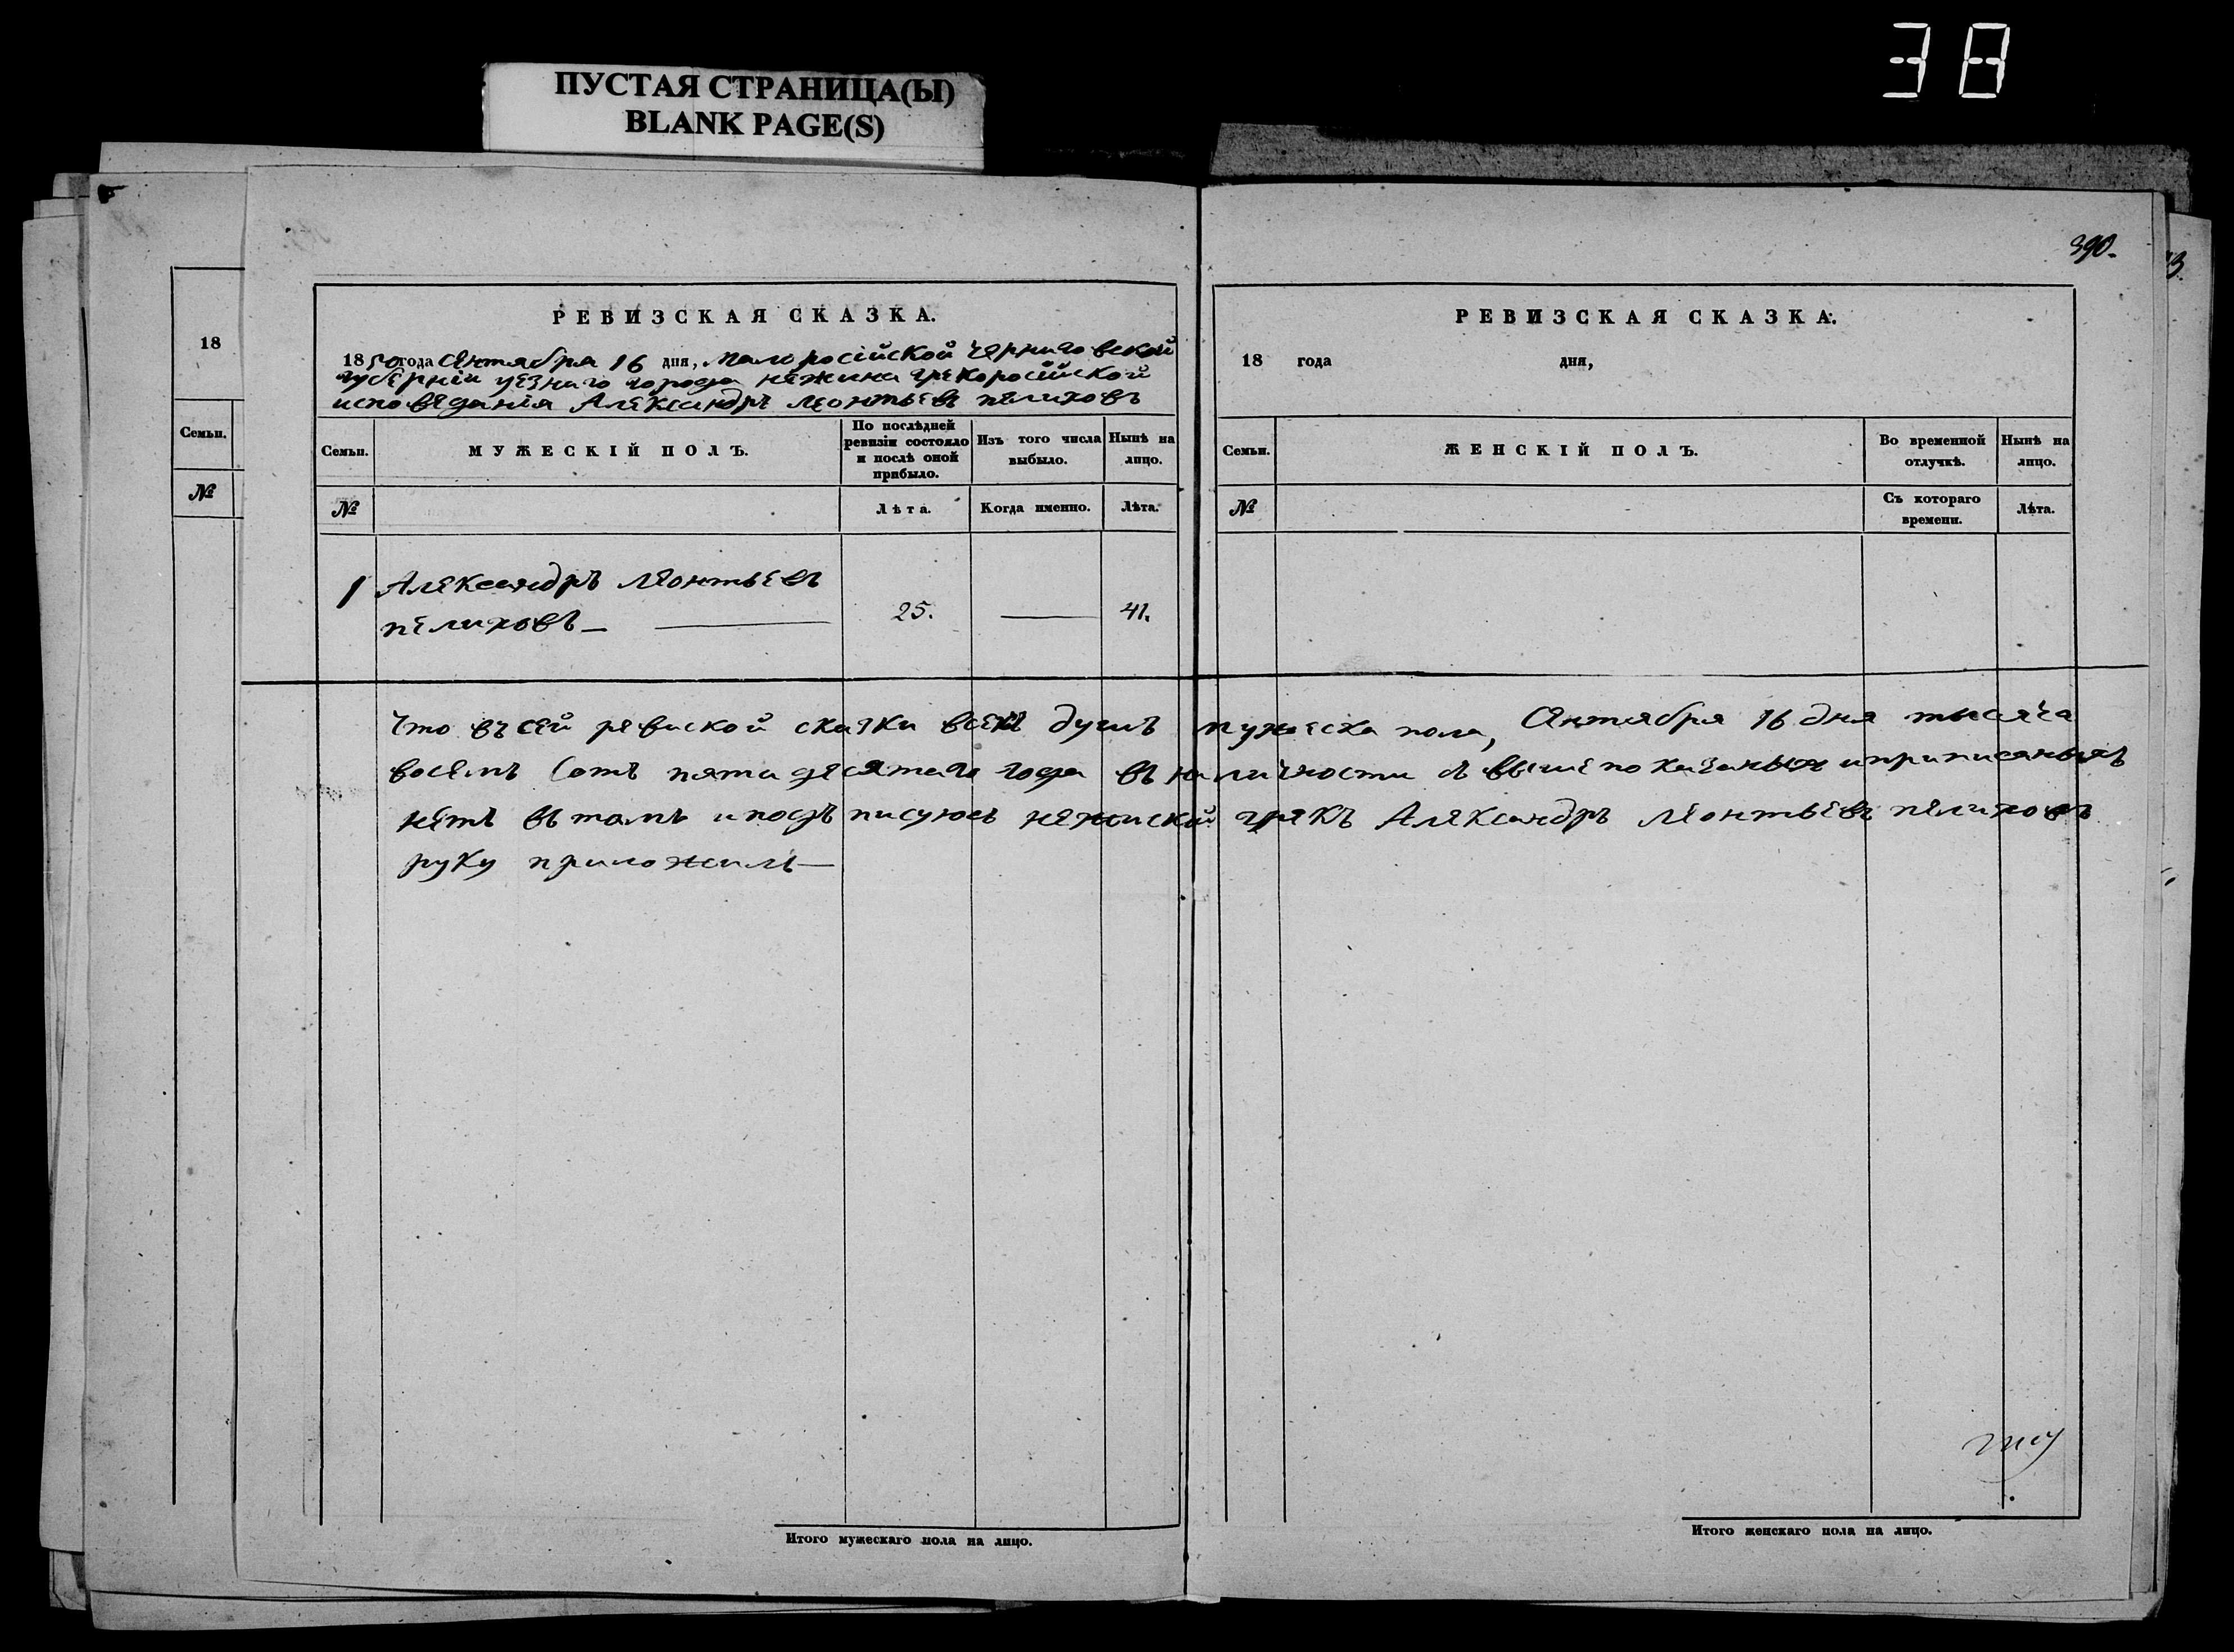 38
ПУСТАЯ СТРАНИЦА(Ы)
BLANK PAGE(S)
390.
13.
18
Семьи.
№
РЕВИЗСКАЯ СКАЗКА.
1850 года Сентября 16 дня, малоросійской Черниговской
губерніи уезнаго города нежина грекоросійской
исповеданія Александръ леонтьевъ пелиховъ
Семьи.
МУЖЕСКІЙ ПОЛЪ.
По послѣдней ревизіи состояло и послѣ оной прибыло.
Изъ того числа выбыло.
Нынѣ на лицо.
№
Лѣта.
Когда именно.
Лѣта.
1 Александръ леонтьевъ
пелиховъ — 25. — 41.
РЕВИЗСКАЯ СКАЗКА.
18 года дня,
Семьи.
ЖЕНСКІЙ ПОЛЪ.
Во временной отлучкѣ.
Нынѣ на лицо.
№
Съ котораго времени.
Лѣта.
Что въ сей ревиской сказки всехъ душъ мужеска пола, Сентября 16 дня тысяча
восемъ сотъ пятидесятаго года въ наличности а вышепоказаныхъ и приписаныхъ
нетъ въ томъ и подъписуюсь нежиский грекъ Александръ леонтьевъ пелиховъ
руку приложилъ—
Итого мужескаго пола на лицо.
Итого женскаго пола на лицо.